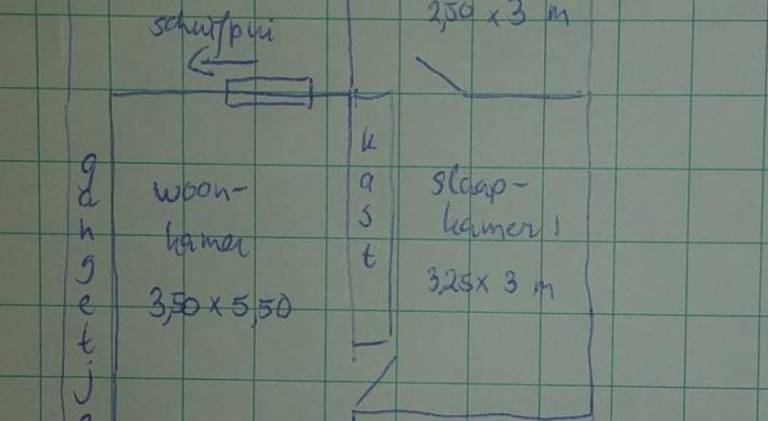 2,50 x 3 m
schuifpui
kast
woon-
kamer
3,50 x 5,50
slaap-
kamer 1
3,25 x 3 m
gangetje